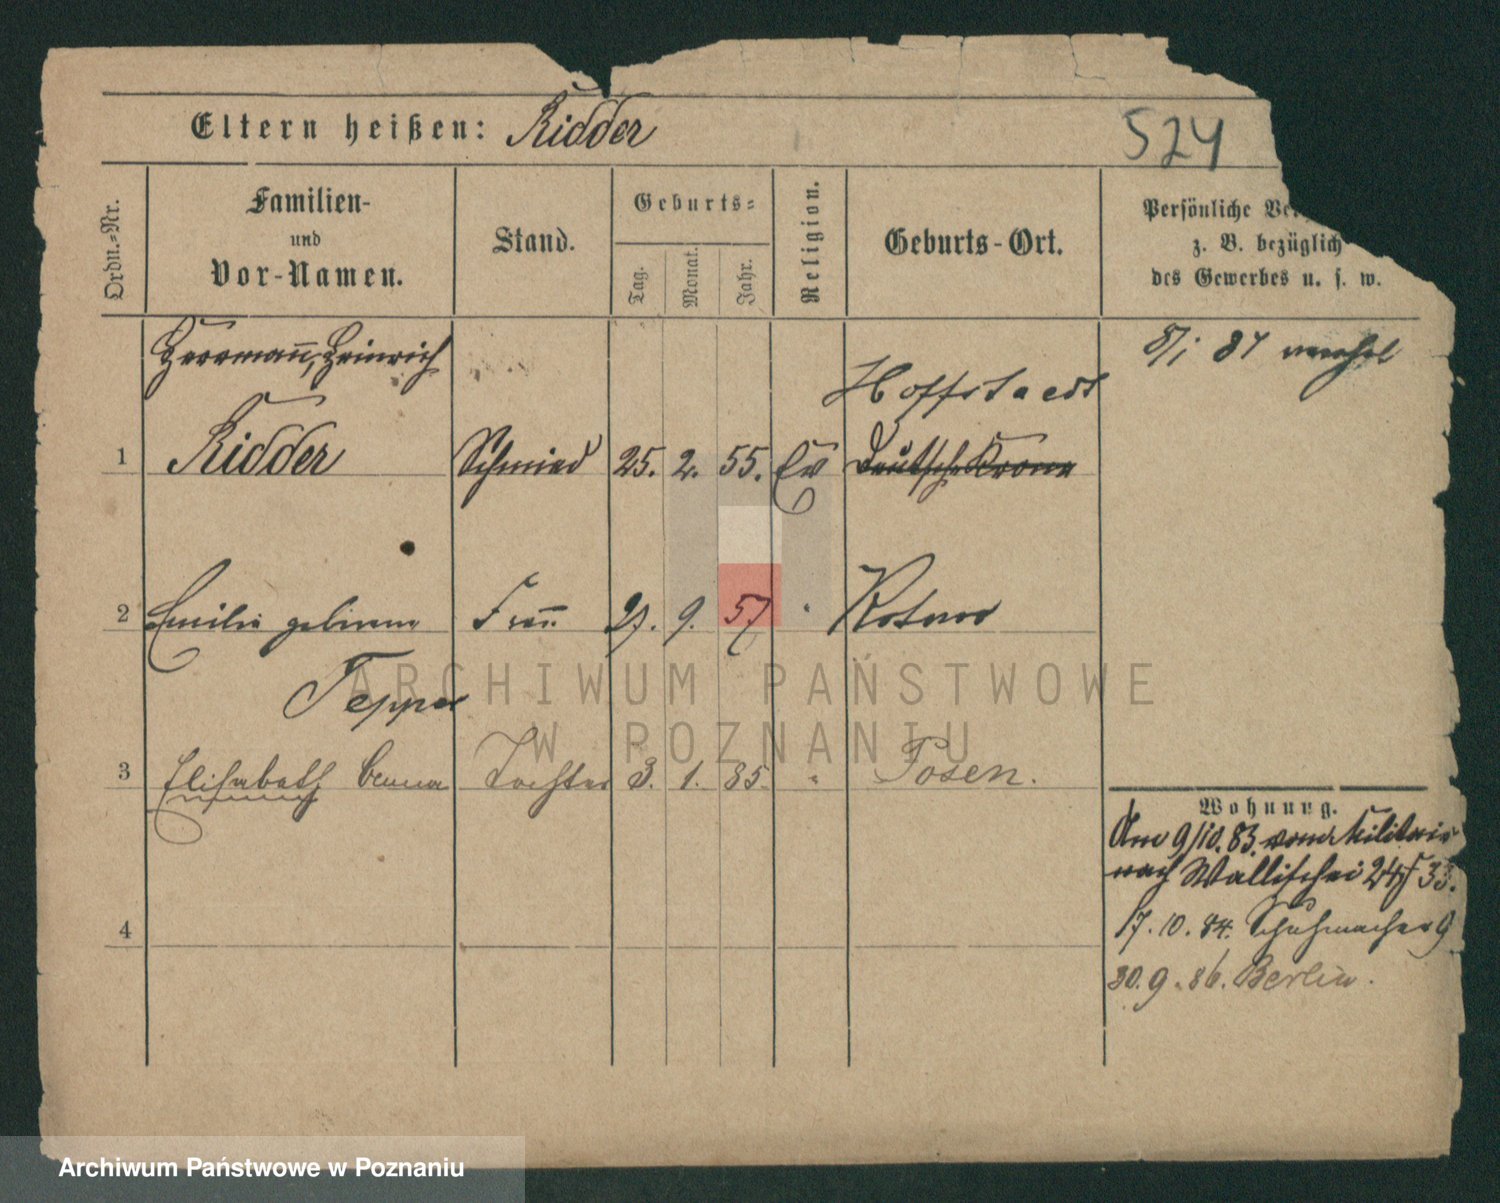 Eltern heißen: Ridder
524
Ordn.-Nr.
Familien-
und
Vor-Namen.
Stand.
Geburts-
Tag.
Monat.
Jahr.
Religion.
Geburts-Ort.
Persönliche Ver
z. B. bezüglich
des Gewerbes u. s. w.
Herrmann, Heinrich
8/1 87
Hoffstaedt
1 Ridder Schmied 25. 2. 55. Ev Deutsch Krone
2 Emilie geborene Frau 27. 9. 57
Tepper
3 Elisabeth Tochter 3. 1. 85. " Posen.
4
Wohnung.
Am 9/10. 83. vom Militair
nach Wallischei 33.
17. 10. 84. Schuhmacher 9
30. 9. 86. Berlin.
ARCHIWUM PAŃSTWOWE
W POZNANIU
Archiwum Państwowe w Poznaniu